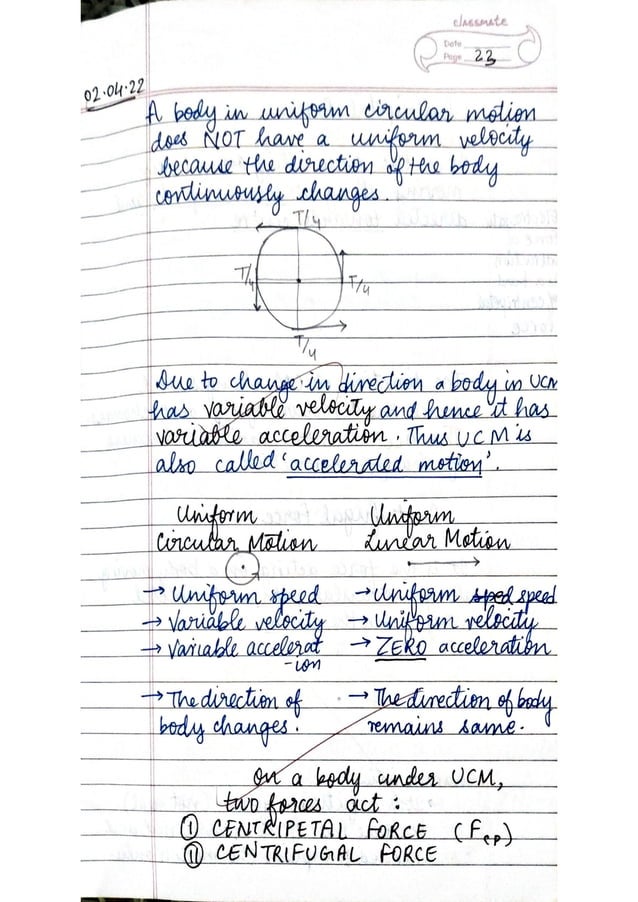 classmate
Date
Page 23
02.04.22
A body in uniform circular motion
does NOT have a uniform velocity
because the direction of the body
continuously changes.
T/4
T/4 T/4
T/4
Due to change in direction a body in UCM
has variable velocity and hence it has
variable acceleration. Thus UCM is
also called 'accelerated motion'.
Uniform Uniform
Circular Motion Linear Motion
→ Uniform speed → Uniform sped speed
→ Variable velocity → Uniform velocity
→ Variable accelerat → ZERO acceleration
-ion
→ The direction of → The direction of body
body changes. remains same.
On a body under UCM,
two forces act :
Ⓘ CENTRIPETAL FORCE (Fcp)
Ⓘⓘ CENTRIFUGAL FORCE